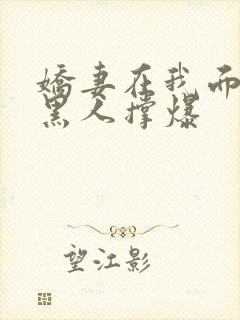 娇妻在我面
黑人撑爆
望江影